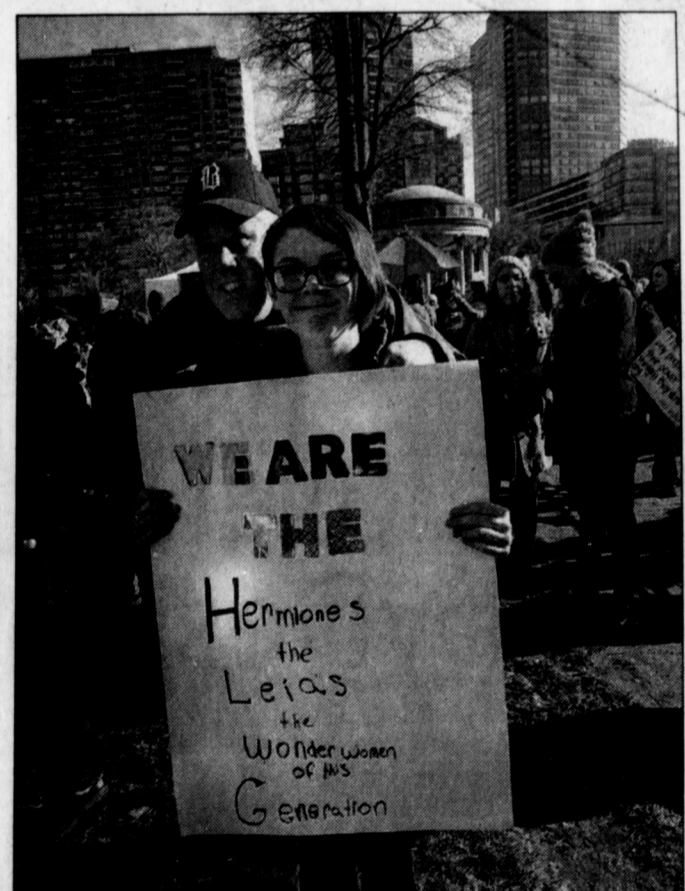 WE ARE
THE
Hermiones
the
Leias
the
Wonder Women
of this
Generation
B